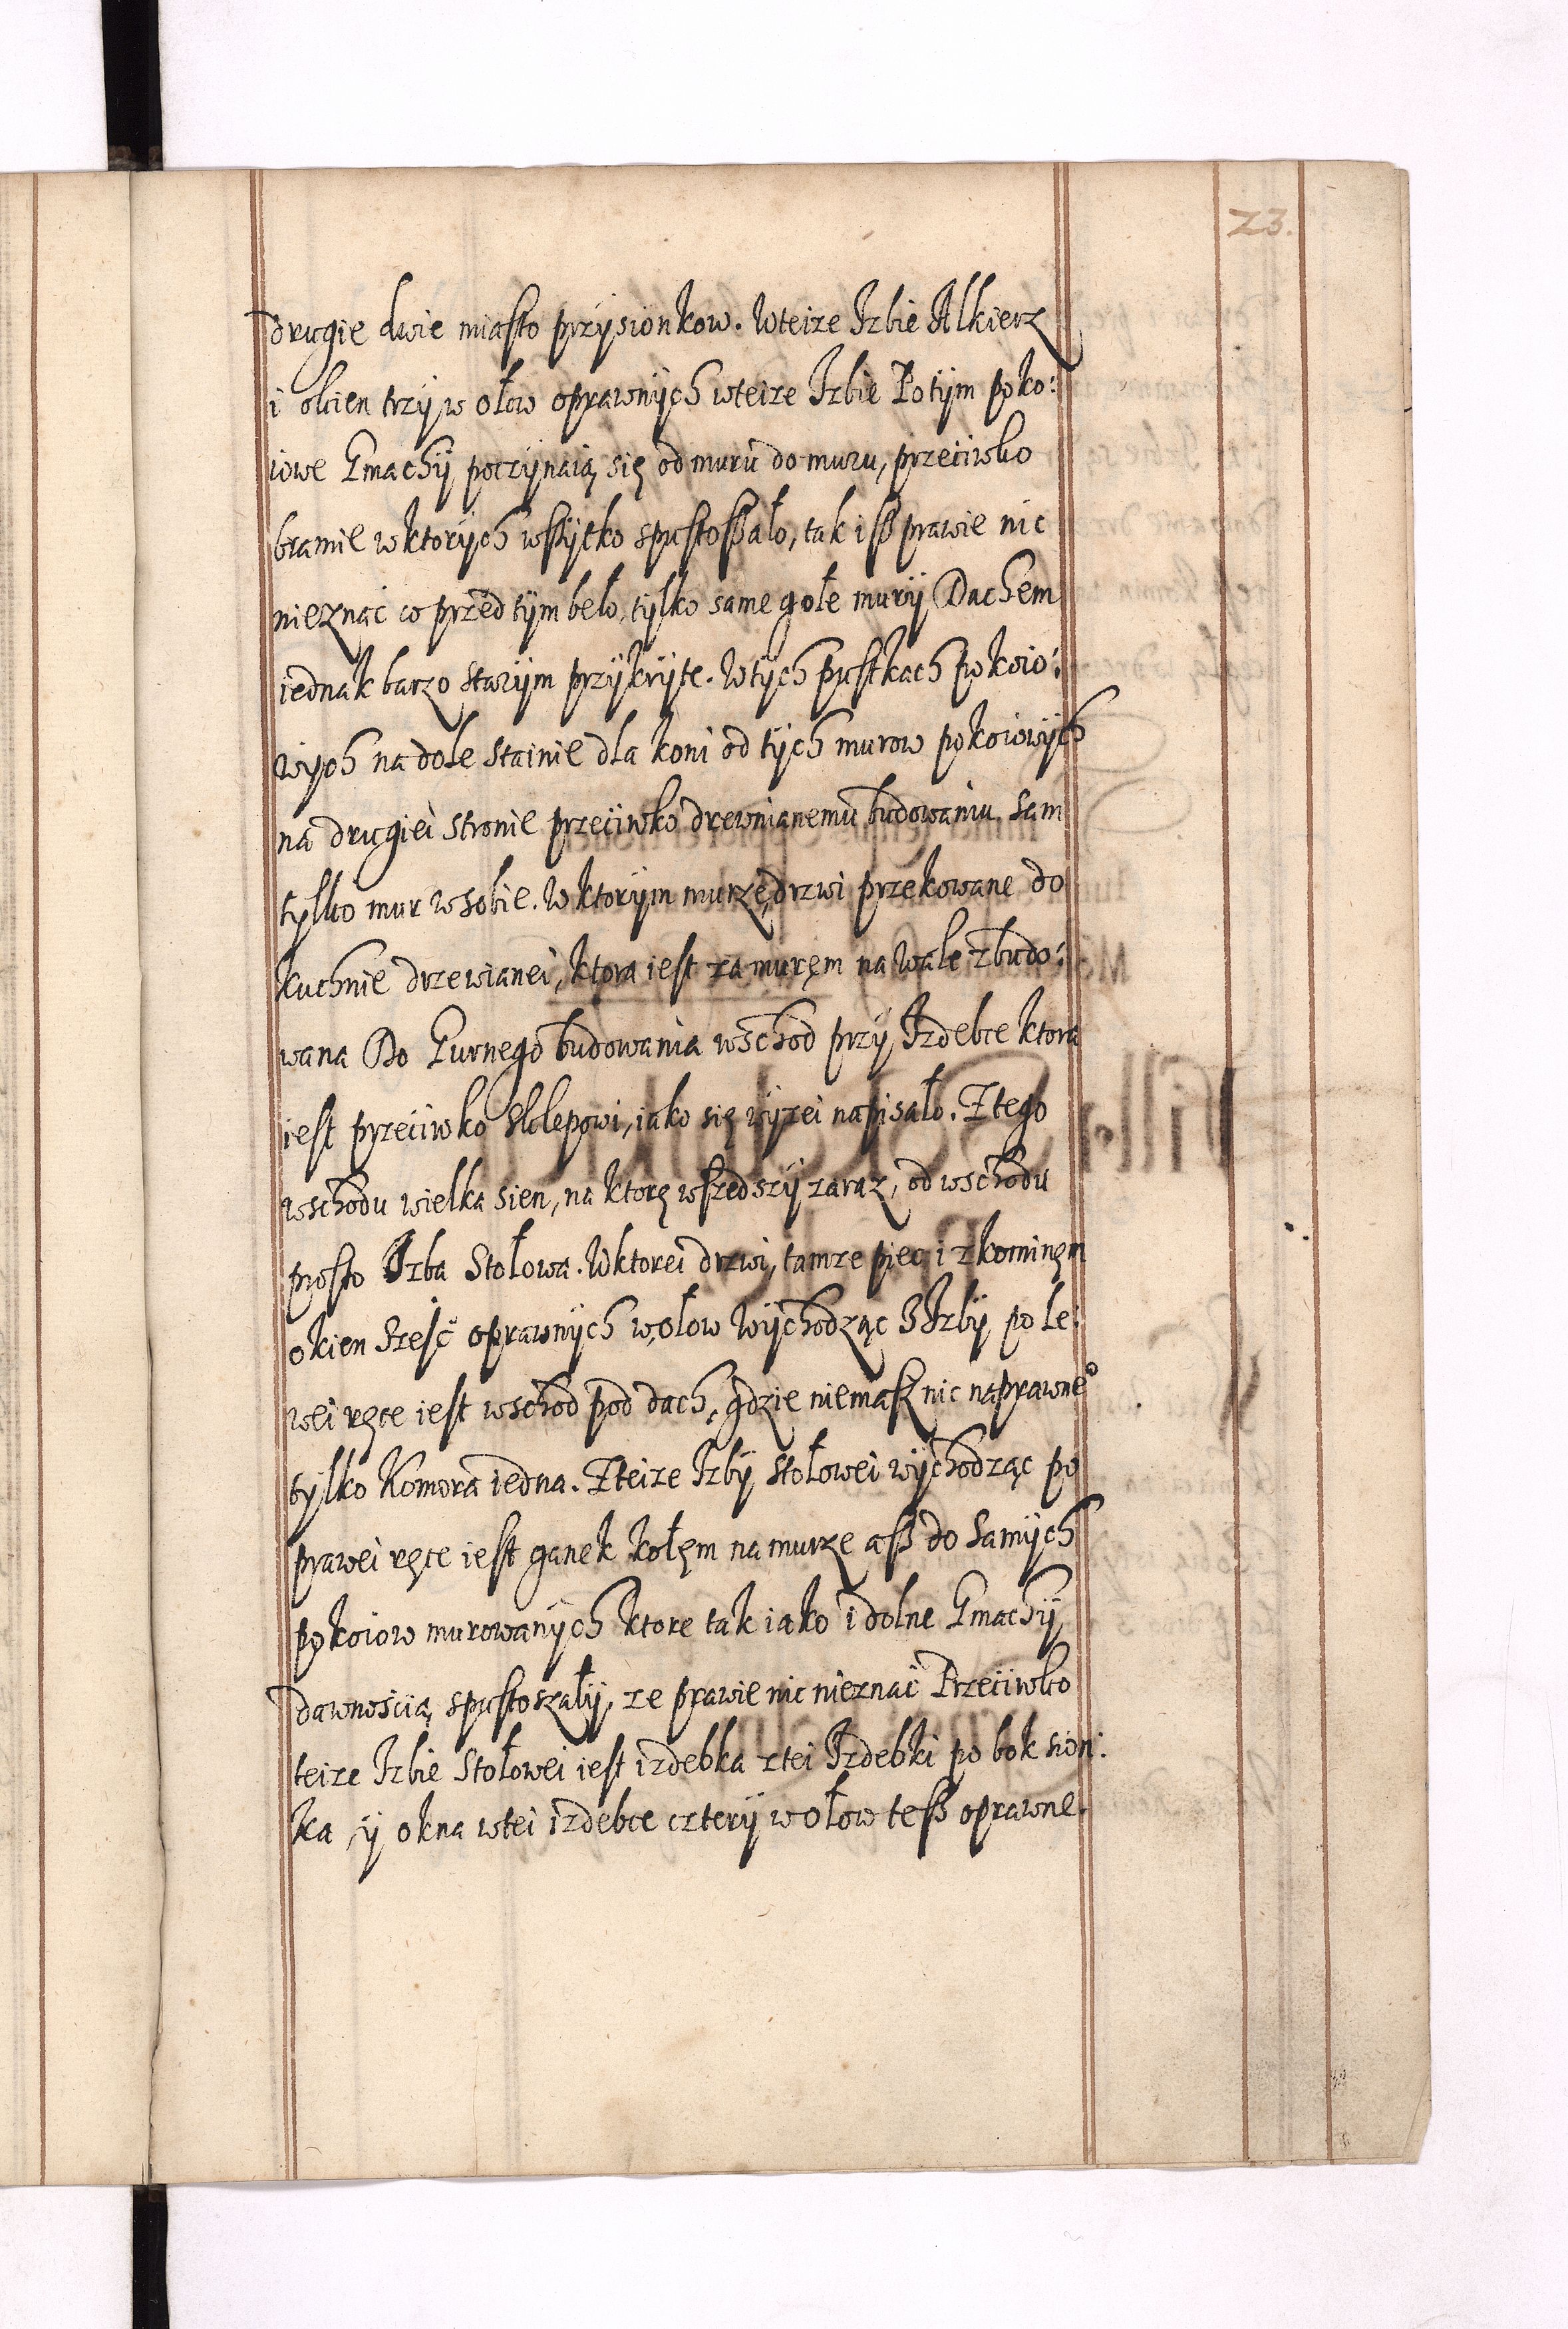 23.
drugie dwie miasto przÿsionkow. Wteize Izbie Alkierz
i okien trzÿ w ołow oprawnÿch wteize Izbie Potÿm poko:
iowe Gmachÿ poczÿnaią się od muru do muru, przeciwko
bramie wktorÿch wßÿtko spustoßało, tak iß prawie nic
nieznać co przed tÿm beło, tÿlko same gołe murÿ Dachem
iednak barzo starÿm przÿkrÿte. Wtÿch pustkach pokoio:
wÿch na dole Stainie dla koni od tÿch murow pokoiowÿch
na drugiei stronie przeciwko drewnianemu budowaniu. Sam
tÿlko mur wsobie. Wktorÿm murze, drzwi przekowane do
kuchnie drzewianei, ktora iest za murem na wale zbudo:
wana Do Gurnego budowania wschod przÿ Izdebce ktora
iest przeciwko Sklepowi, iako się wÿzei napisało. Ztego
wschodu wielka sien, na ktorę wszedszÿ zaraz, od wschodu
prosto Izba Stołowa. Wktorei drzwi, tamze piec i zkominem
okien Sześć oprawnÿch wołow Wÿchodząc Z Izbÿ po le:
wei ręce iest wschod pod dach, gdzie niemasz nic naprawneº
tÿlko Komora iedna. Zteize Izbÿ Stołowei wÿchodząc po
prawei ręce iest ganek kołem na murze aß do Samÿch
pokoiow murowanÿch ktore tak iako i dolne Gmachÿ
dawnoscią spustoszałÿ, ze prawie nic nieznać Przeciwko
teize Izbie Stołowei iest izdebka ztei Izdebki po bok sion:
ka ÿ okna wtei izdebce czterÿ w ołow teß oprawne.